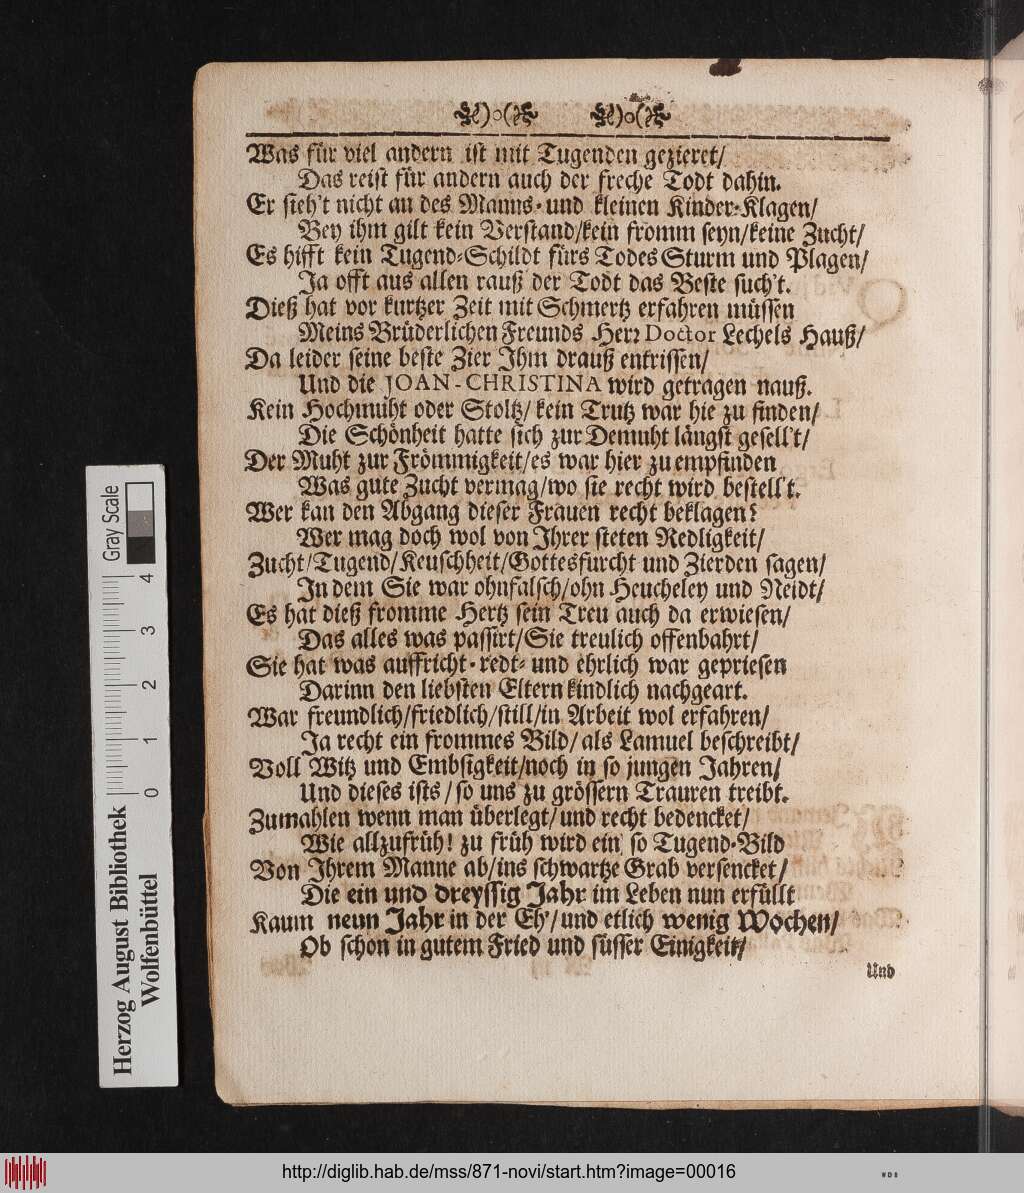 Was für viel andern ist mit Tugenden gezieret/
Das reist für andern auch der freche Todt dahin.
Er sieh't nicht an des Manns- und kleinen Kinder-Klagen/
Bey ihm gilt kein Verstand/kein fromm seyn/keine Zucht/
Es hifft kein Tugend-Schildt fürs Todes Sturm und Plagen/
Ja offt aus allen rauß der Todt das Beste such't.
Dieß hat vor kurtzer Zeit mit Schmertz erfahren müssen
Meins Brüderlichen Freunds Herr Doctor Lechels Hauß/
Da leider seine beste Zier Ihm drauß entrissen/
Und die JOAN-CHRISTINA wird getragen nauß.
Kein Hochmuht oder Stoltz/ kein Trutz war hie zu finden/
Die Schönheit hatte sich zur Demuht längst gesell't/
Der Muht zur Frömmigkeit/es war hier zu empfinden
Was gute Zucht vermag/wo sie recht wird bestell't.
Wer kan den Abgang dieser Frauen recht beklagen?
Wer mag doch wol von Ihrer steten Redligkeit/
Zucht/Tugend/Keuschheit/Gottesfurcht und Zierden sagen/
In dem Sie war ohnfalsch/ohn Heucheley und Neidt/
Es hat dieß fromme Hertz sein Treu auch da erwiesen/
Das alles was passirt/Sie treulich offenbahrt/
Sie hat was auffricht- redt- und ehrlich war gepriesen
Darinn den liebsten Eltern kindlich nachgeart.
War freundlich/friedlich/still/in Arbeit wol erfahren/
Ja recht ein frommes Bild/ als Lamuel beschreibt/
Voll Witz und Embsigkeit/noch in so jungen Jahren/
Und dieses ists/ so uns zu grössern Trauren treibt.
Zumahlen wenn man überlegt/und recht bedencket/
Wie allzufrüh! zu früh wird ein so Tugend-Bild
Von Ihrem Manne ab/ins schwartze Grab versencket/
Die ein und dreyssig Jahr im Leben nun erfüllt
Kaum neun Jahr in der Eh'/und etlich wenig Wochen/
Ob schon in gutem Fried und süsser Einigkeit/
Und
Gray Scale
4
3
2
1
0
Herzog August Bibliothek
Wolfenbüttel
http://diglib.hab.de/mss/871-novi/start.htm?image=00016